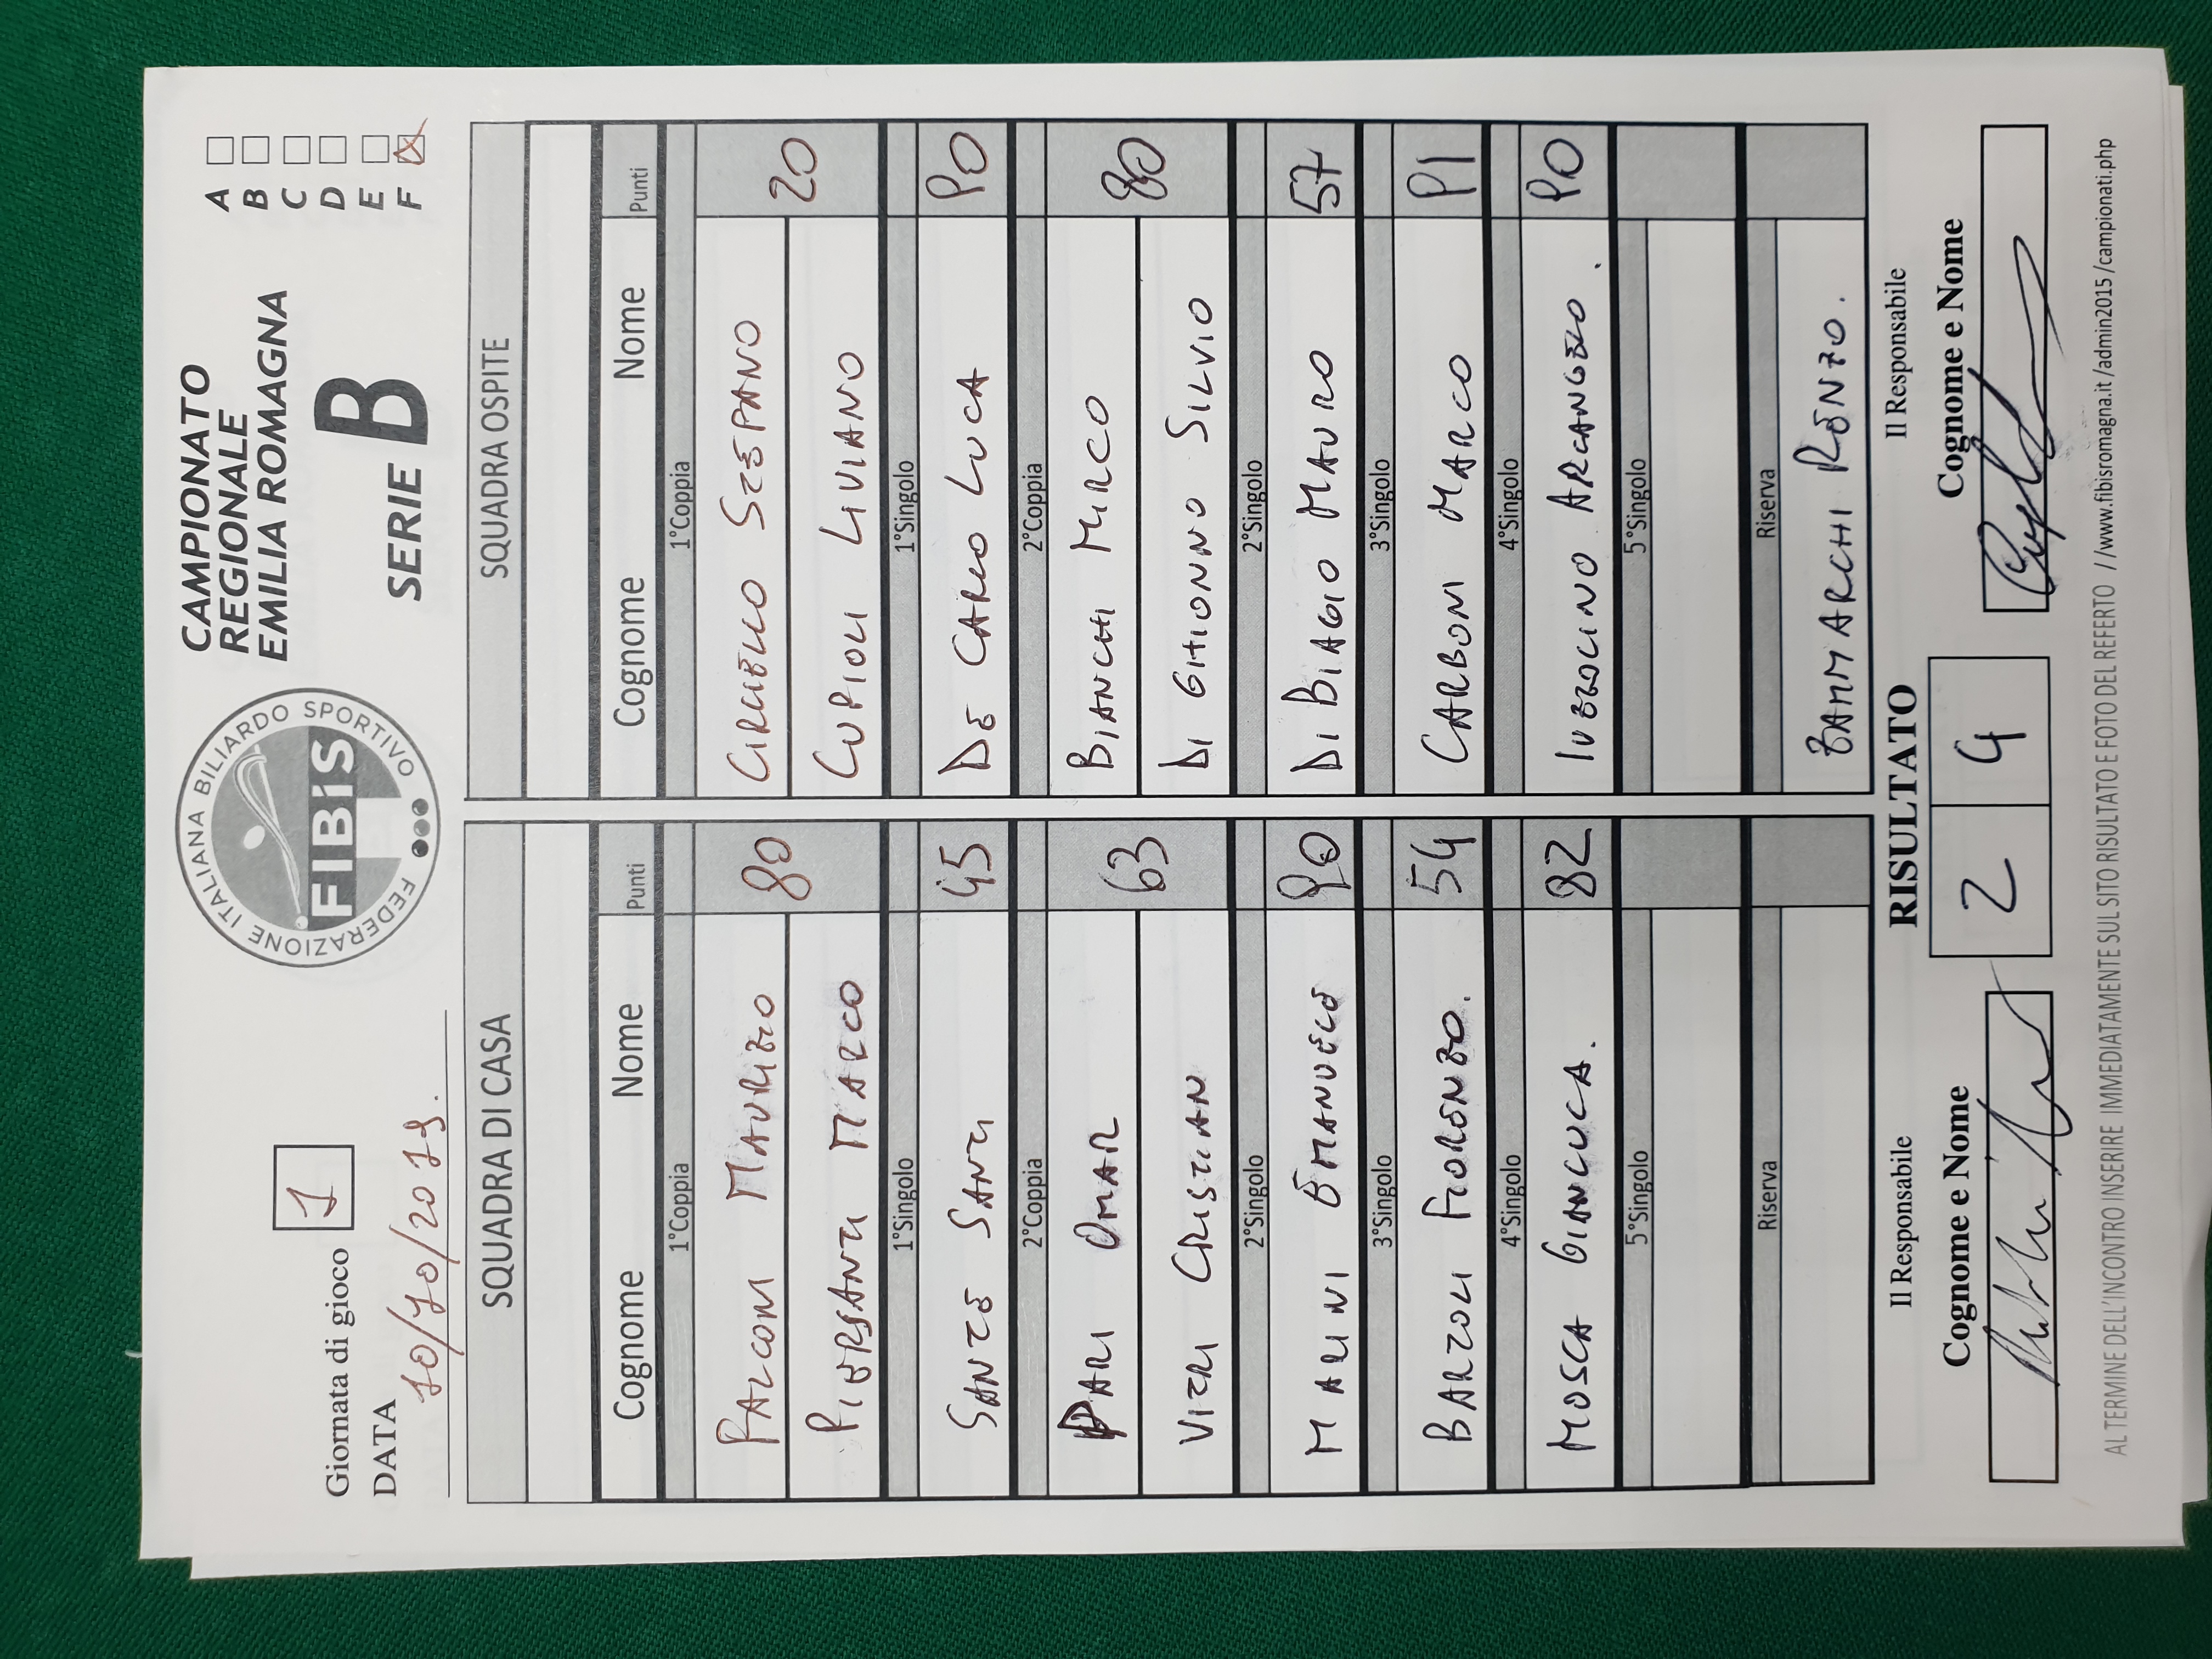 Giornata di gioco 1
DATA 10/10/2019.
FEDERAZIONE ITALIANA BILIARDO SPORTIVO
FIBiS
CAMPIONATO
REGIONALE
EMILIA ROMAGNA
SERIE B
A
B
C
D
E
F X
SQUADRA DI CASA
Cognome Nome Punti
1°Coppia
FALCONI MAURIZIO 80
PIERSANTI MARCO
1°Singolo
SANTE SANTI 45
2°Coppia
PARI OMAR 63
VITRI CRISTIAN
2°Singolo
MARINI EMANUELE 90
3°Singolo
BARZOLI FIORENZO. 54
4°Singolo
MOSCA GIANLUCA. 82
5°Singolo
Riserva
SQUADRA OSPITE
Cognome Nome Punti
1°Coppia
CIRCIELLO STEFANO 20
CUPIOLI LIVIANO
1°Singolo
DE CARLO LUCA 90
2°Coppia
BIANCHI MIRCO 80
DI GHIONNO SILVIO
2°Singolo
DI BIAGIO MAURO 57
3°Singolo
CARBONI MARCO 91
4°Singolo
IUZZOLINO ARCANGELO. 90
5°Singolo
Riserva
ZAMMARCHI RENZO.
Il Responsabile
Cognome e Nome
RISULTATO
2 4
Il Responsabile
Cognome e Nome
AL TERMINE DELL'INCONTRO INSERIRE IMMEDIATAMENTE SUL SITO RISULTATO E FOTO DEL REFERTO //www.fibisromagna.it /admin2015 /campionati.php